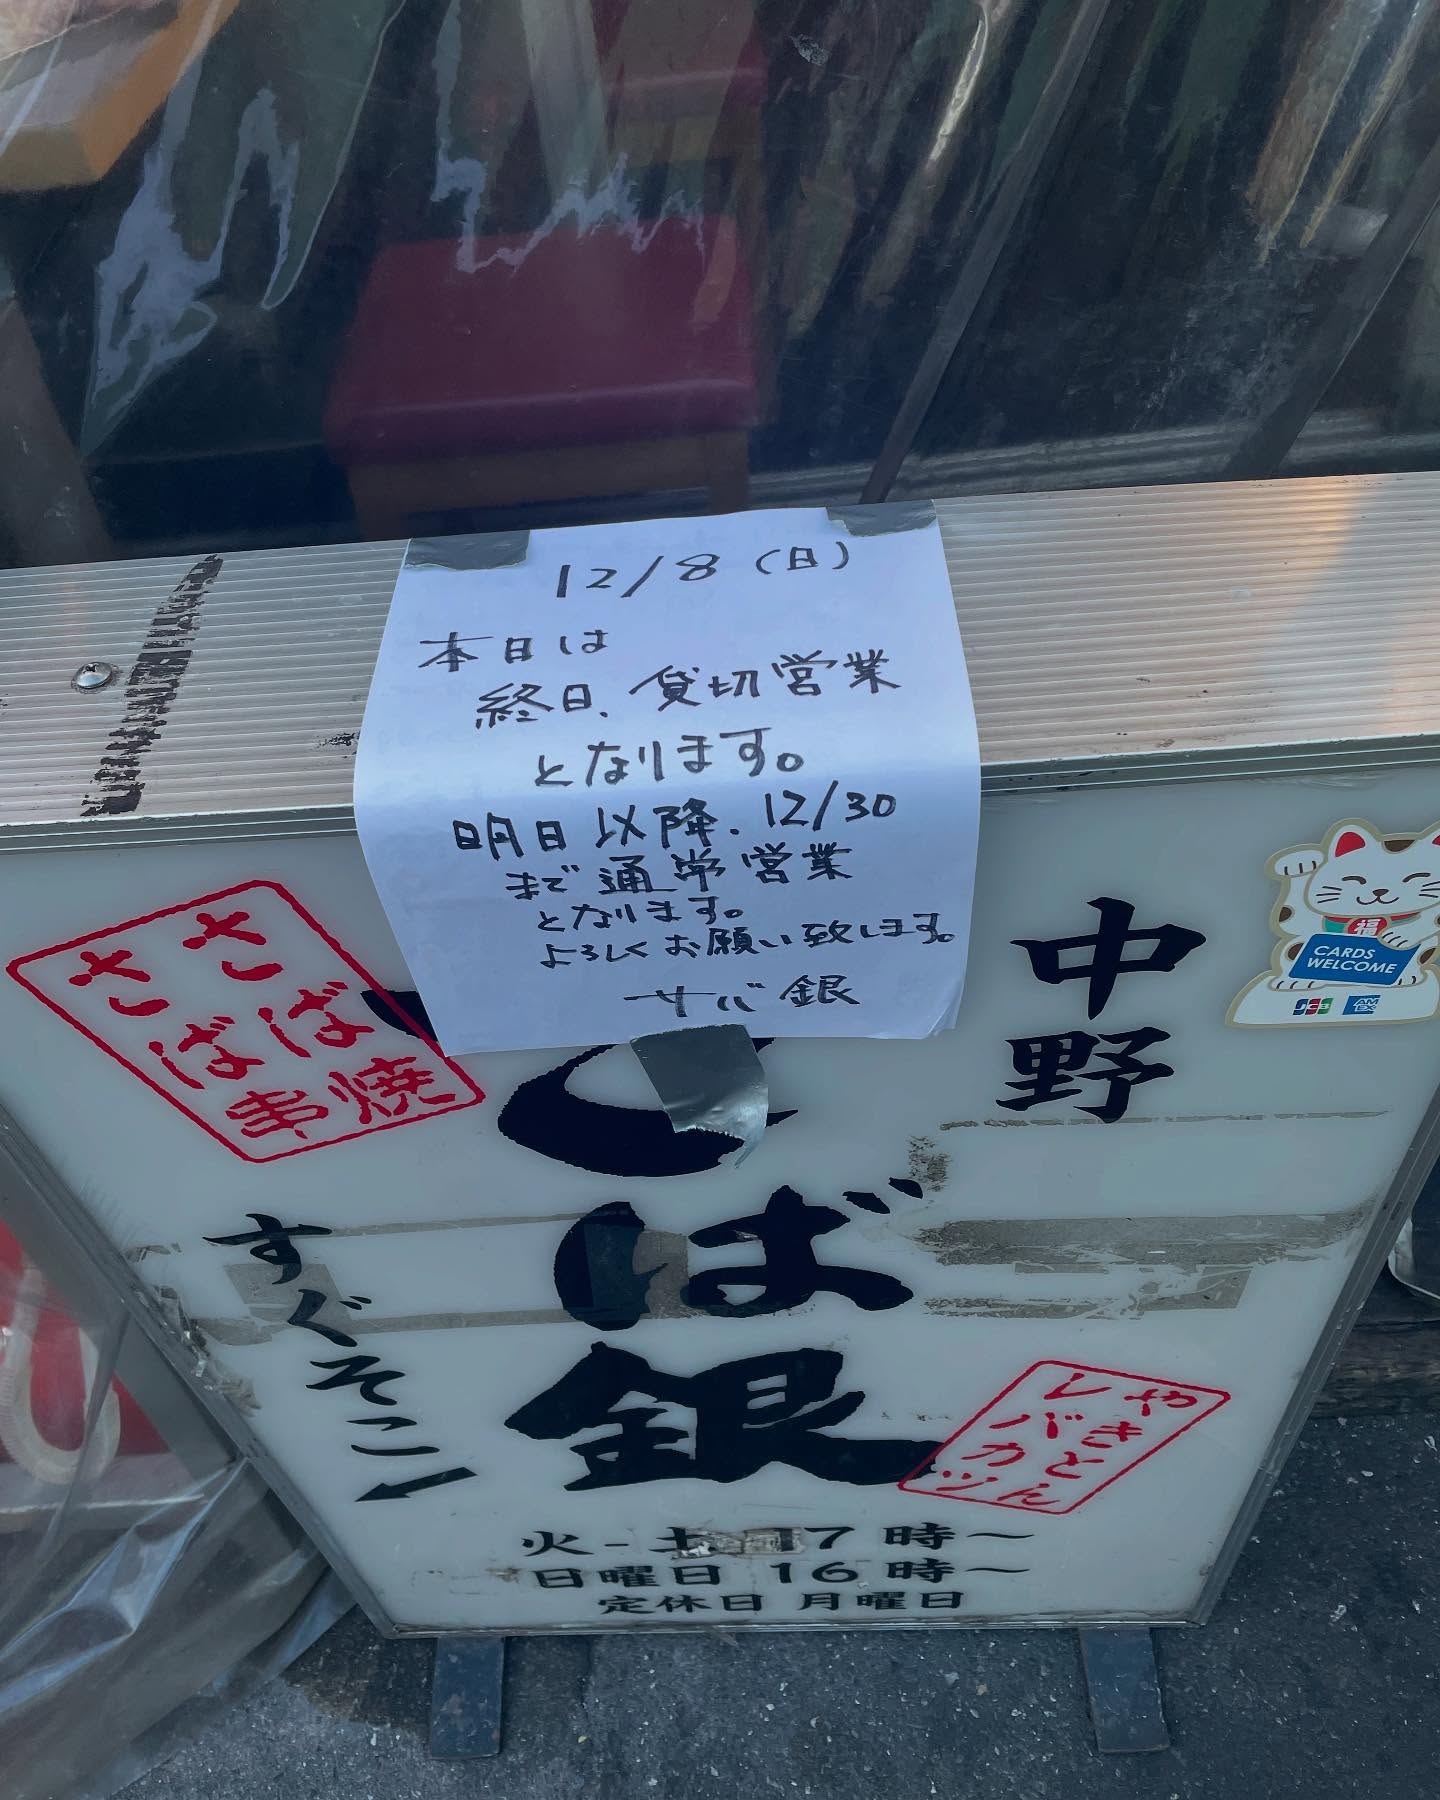 12/8(日)
本日は
終日、貸切営業
となります。
明日以降、12/30
まで通常営業
となります。
よろしくお願い致します。
サバ銀
中野
ば銀
さば焼
さば串
すぐそこ
やきとん
レバカツ
CARDS
WELCOME
福
JCB
AM
EX
火-土 17時〜
日曜日 16時〜
定休日 月曜日